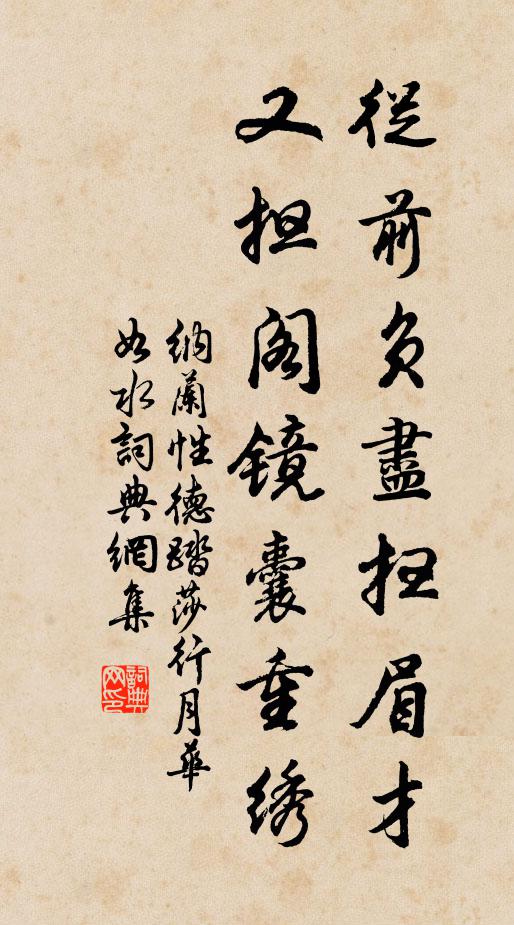 從前負盡扫眉才
又担阁镜囊重绣
纳蘭性德踏莎行月華
如水詞典網集
詞典網印